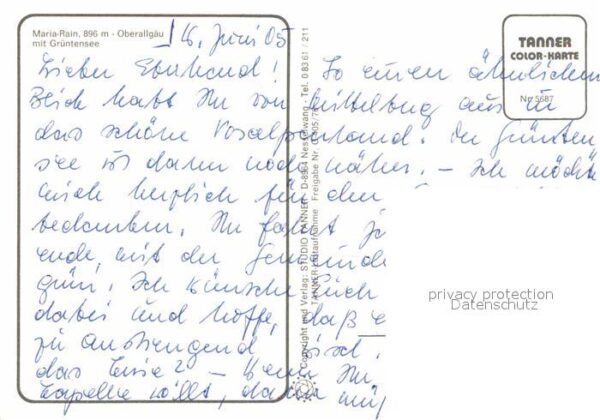 Maria-Rain, 896 m - Oberallgäu
mit Grüntensee
16. Juni 05
TANNER
COLOR-KARTE
Nr. 5687
Lieber Eberhard! So einen ähnlichen
habt Ihr von Mittelberg aus in
das schöne Voralpenland. Der Grünten
see ist dann noch näher. – Ich möchte
mich herzlich für den
bedanken. Ihr fahrt
ende, mit der Gemeinde
Ich wünsche Euch
dabei und hoffe, daß
zu anstrengend
das – Wenn Ihr
Kapelle wollt, dann
Copyright und Verlag: STUDIO TANNER · D-8964 Nesselwang · Tel. 0 83 61 / 211
TANNER-Luftaufnahme Freigabe Nr.
privacy protection
Datenschutz